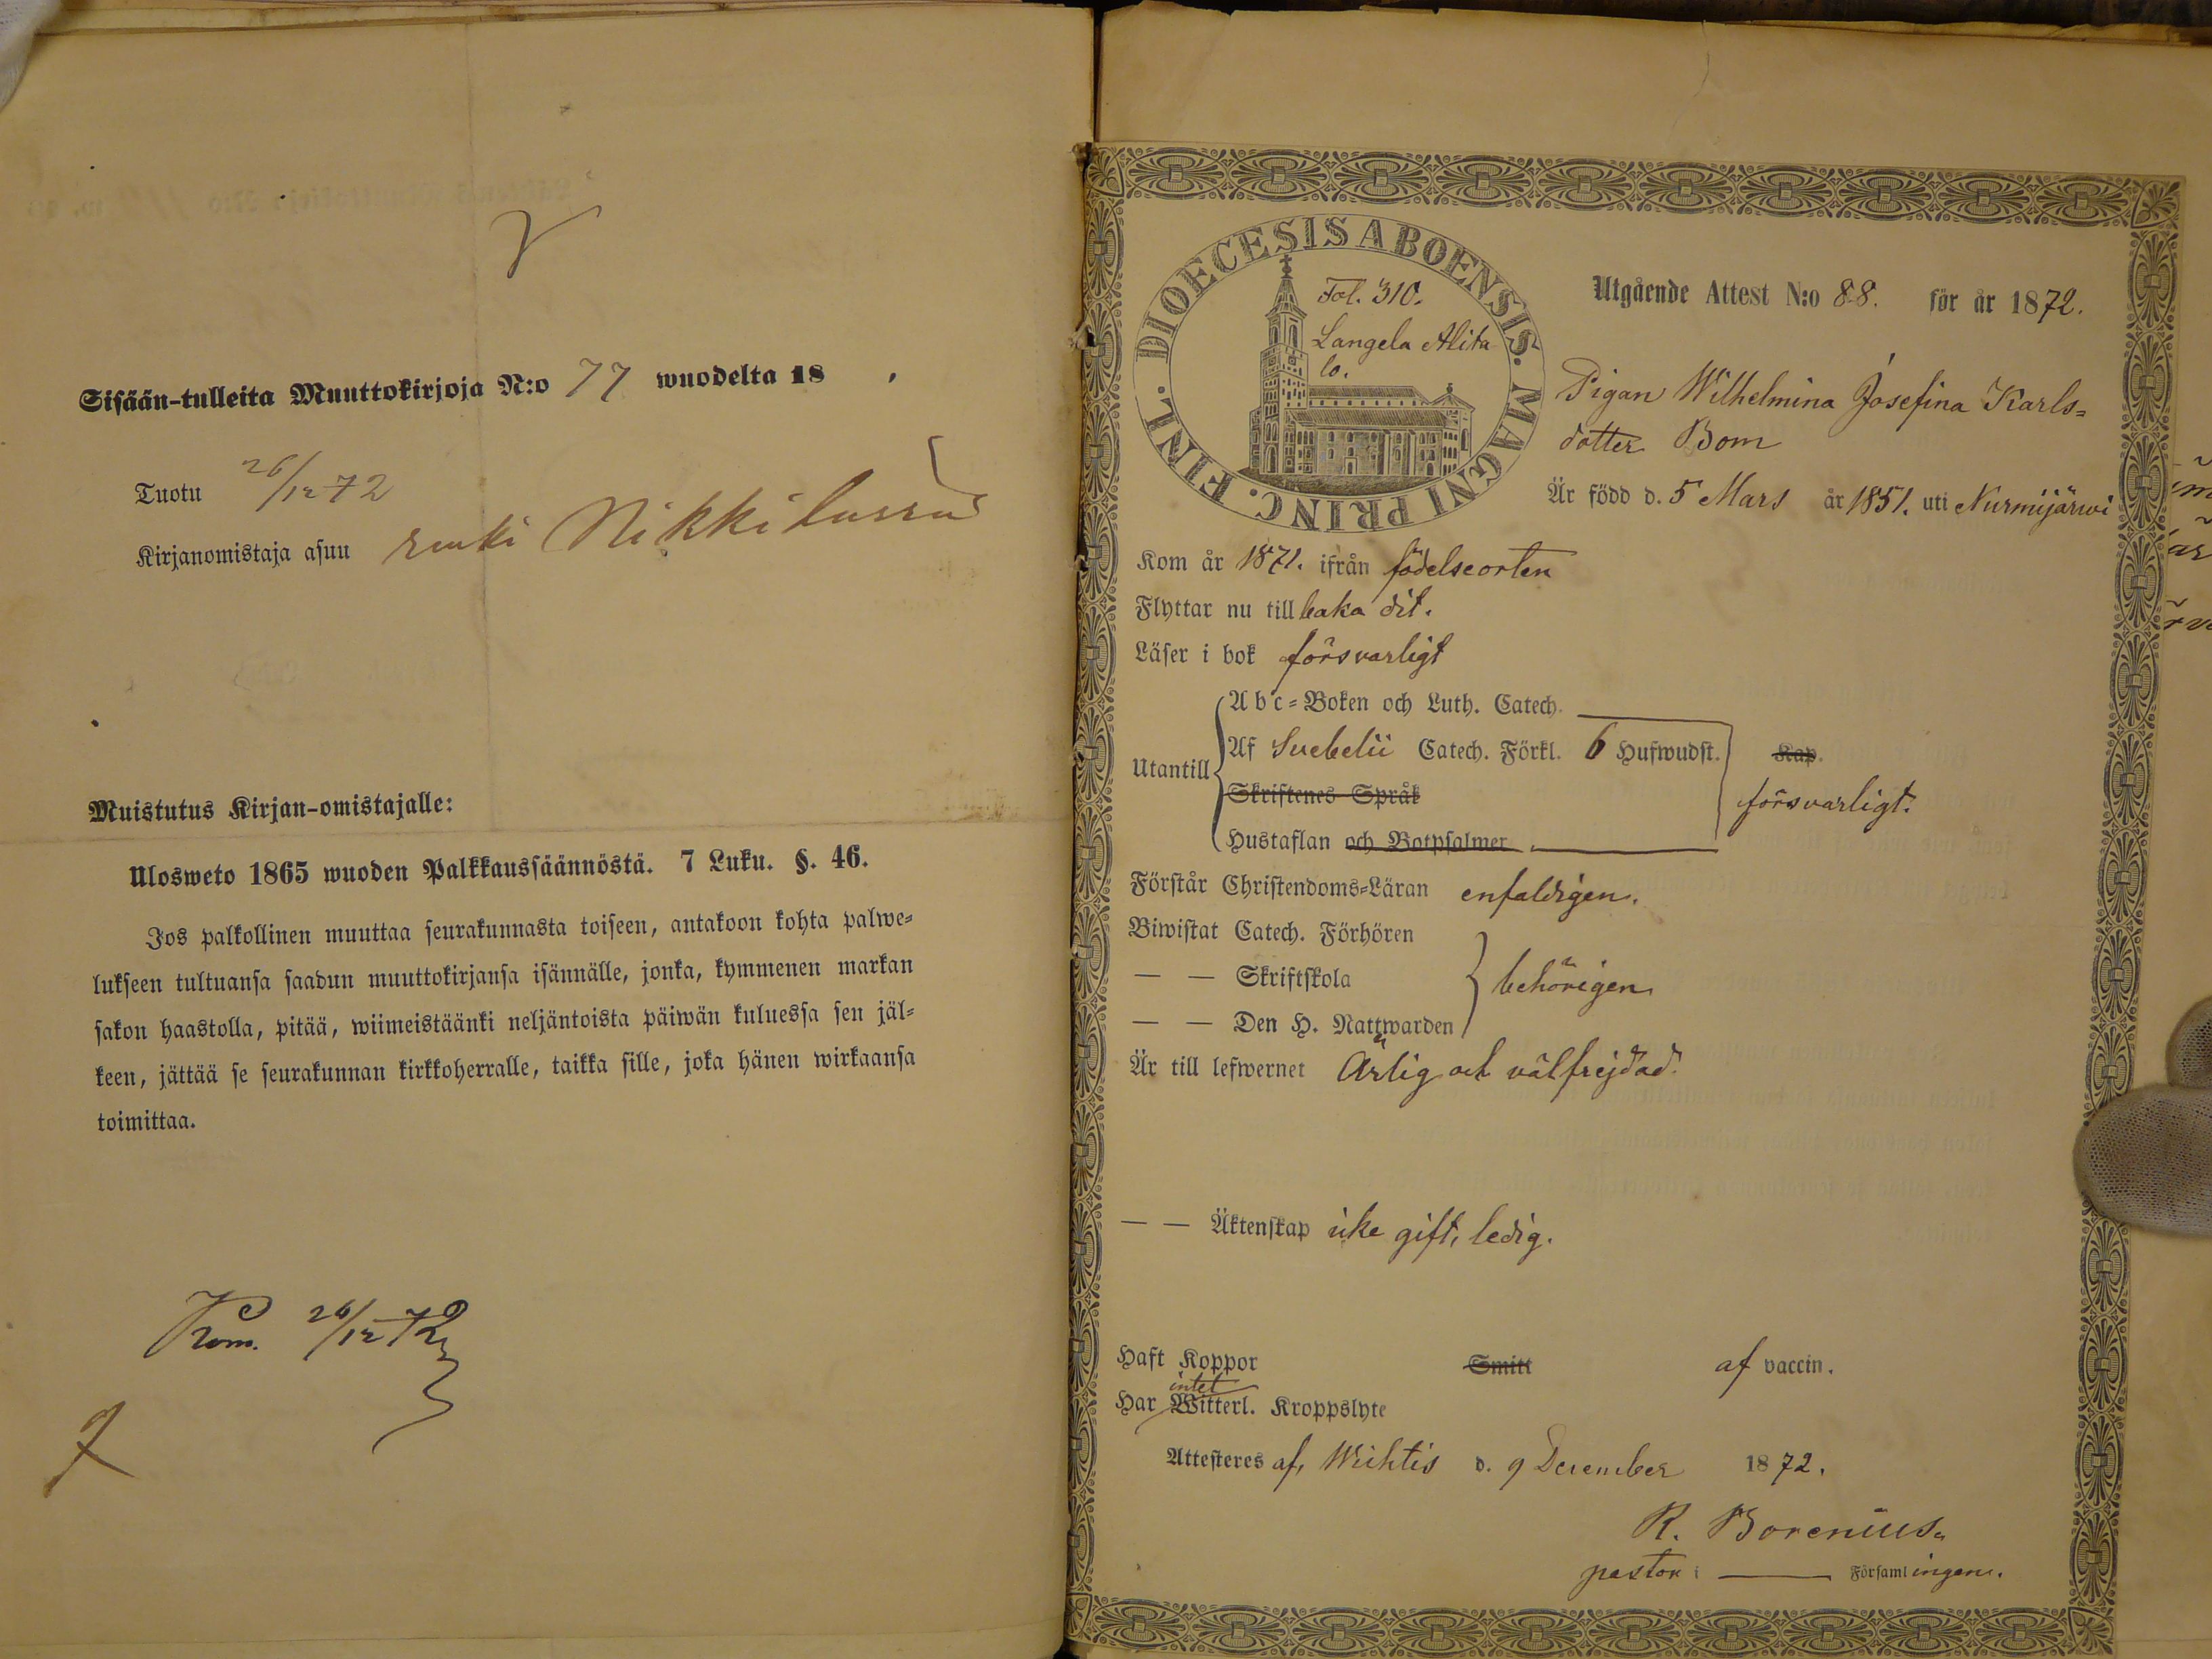 Sisään-tulleita Muuttokirjoja N:o 77 wuodelta 18 .
Tuotu 26/12 72
Kirjanomistaja asuu Nikkilässä
Muistutus Kirjan-omistajalle:
Ulosweto 1865 wuoden Palkkaussäännöstä. 7 Luku. §. 46.
Jos palkollinen muuttaa seurakunnasta toiseen, antakoon kohta palwe=
lukseen tultuansa saadun muuttokirjansa isännälle, jonka, kymmenen markan
sakon haastolla, pitää, wiimeistäänki neljäntoista päiwän kuluessa sen jäl=
keen, jättää se seurakunnan kirkkoherralle, taikka sille, joka hänen wirkaansa
toimittaa.
Kom. 26/12 72
DIOECESIS ABOENSIS. MAGNI PRINC. FINL.
Fol. 310.
Langela Alita
lo.
Utgående Attest N:o 88. för år 1872.
Pigan Wilhelmina Josefina Karls=
dotter Bom
Är född d. 5 Mars år 1851. uti Nurmijärwi
Kom år 1871. ifrån födelseorten
Flyttar nu till baka dit.
Läser i bok försvarligt
Utantill
A b c = Boken och Luth. Catech.
Af Svebelii Catech. Förkl. 6 Hufwudst. Kap.
Skriftenes Språk
försvarligt.
Hustaflan och Botpsalmer
Förstår Christendoms=Läran enfaldigen.
Biwistat Catech. Förhören
— — Skriftskola
behörigen
— — Den H. Nattwarden
Är till lefwernet Ärlig och välfrejdad.
— — Äktenskap icke gift, ledig.
Haft Koppor Smitt af vaccin.
intet
Har Witterl. Kroppslyte
Attesteres af, Wichtis d. 9 December 1872.
R. Borenius.
pastor i — Församlingen.